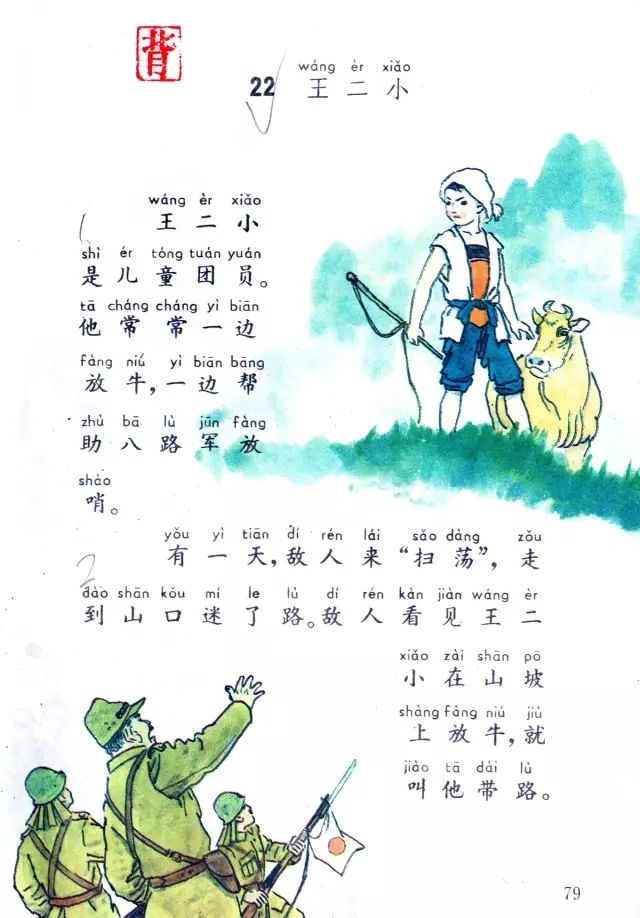 背
wáng èr xiǎo
22 王二小
wáng èr xiǎo
王二小
shì ér tóng tuán yuán
是儿童团员。
tā cháng cháng yì biān
他常常一边
fàng niú yì biān bāng
放牛,一边帮
zhù bā lù jūn fàng
助八路军放
shào
哨。
yǒu yì tiān dí rén lái sǎo dàng zǒu
有一天,敌人来“扫荡”,走
dào shān kǒu mí le lù dí rén kàn jiàn wáng èr
到山口迷了路。敌人看见王二
xiǎo zài shān pō
小在山坡
shàng fàng niú jiù
上放牛,就
jiào tā dài lù
叫他带路。
79